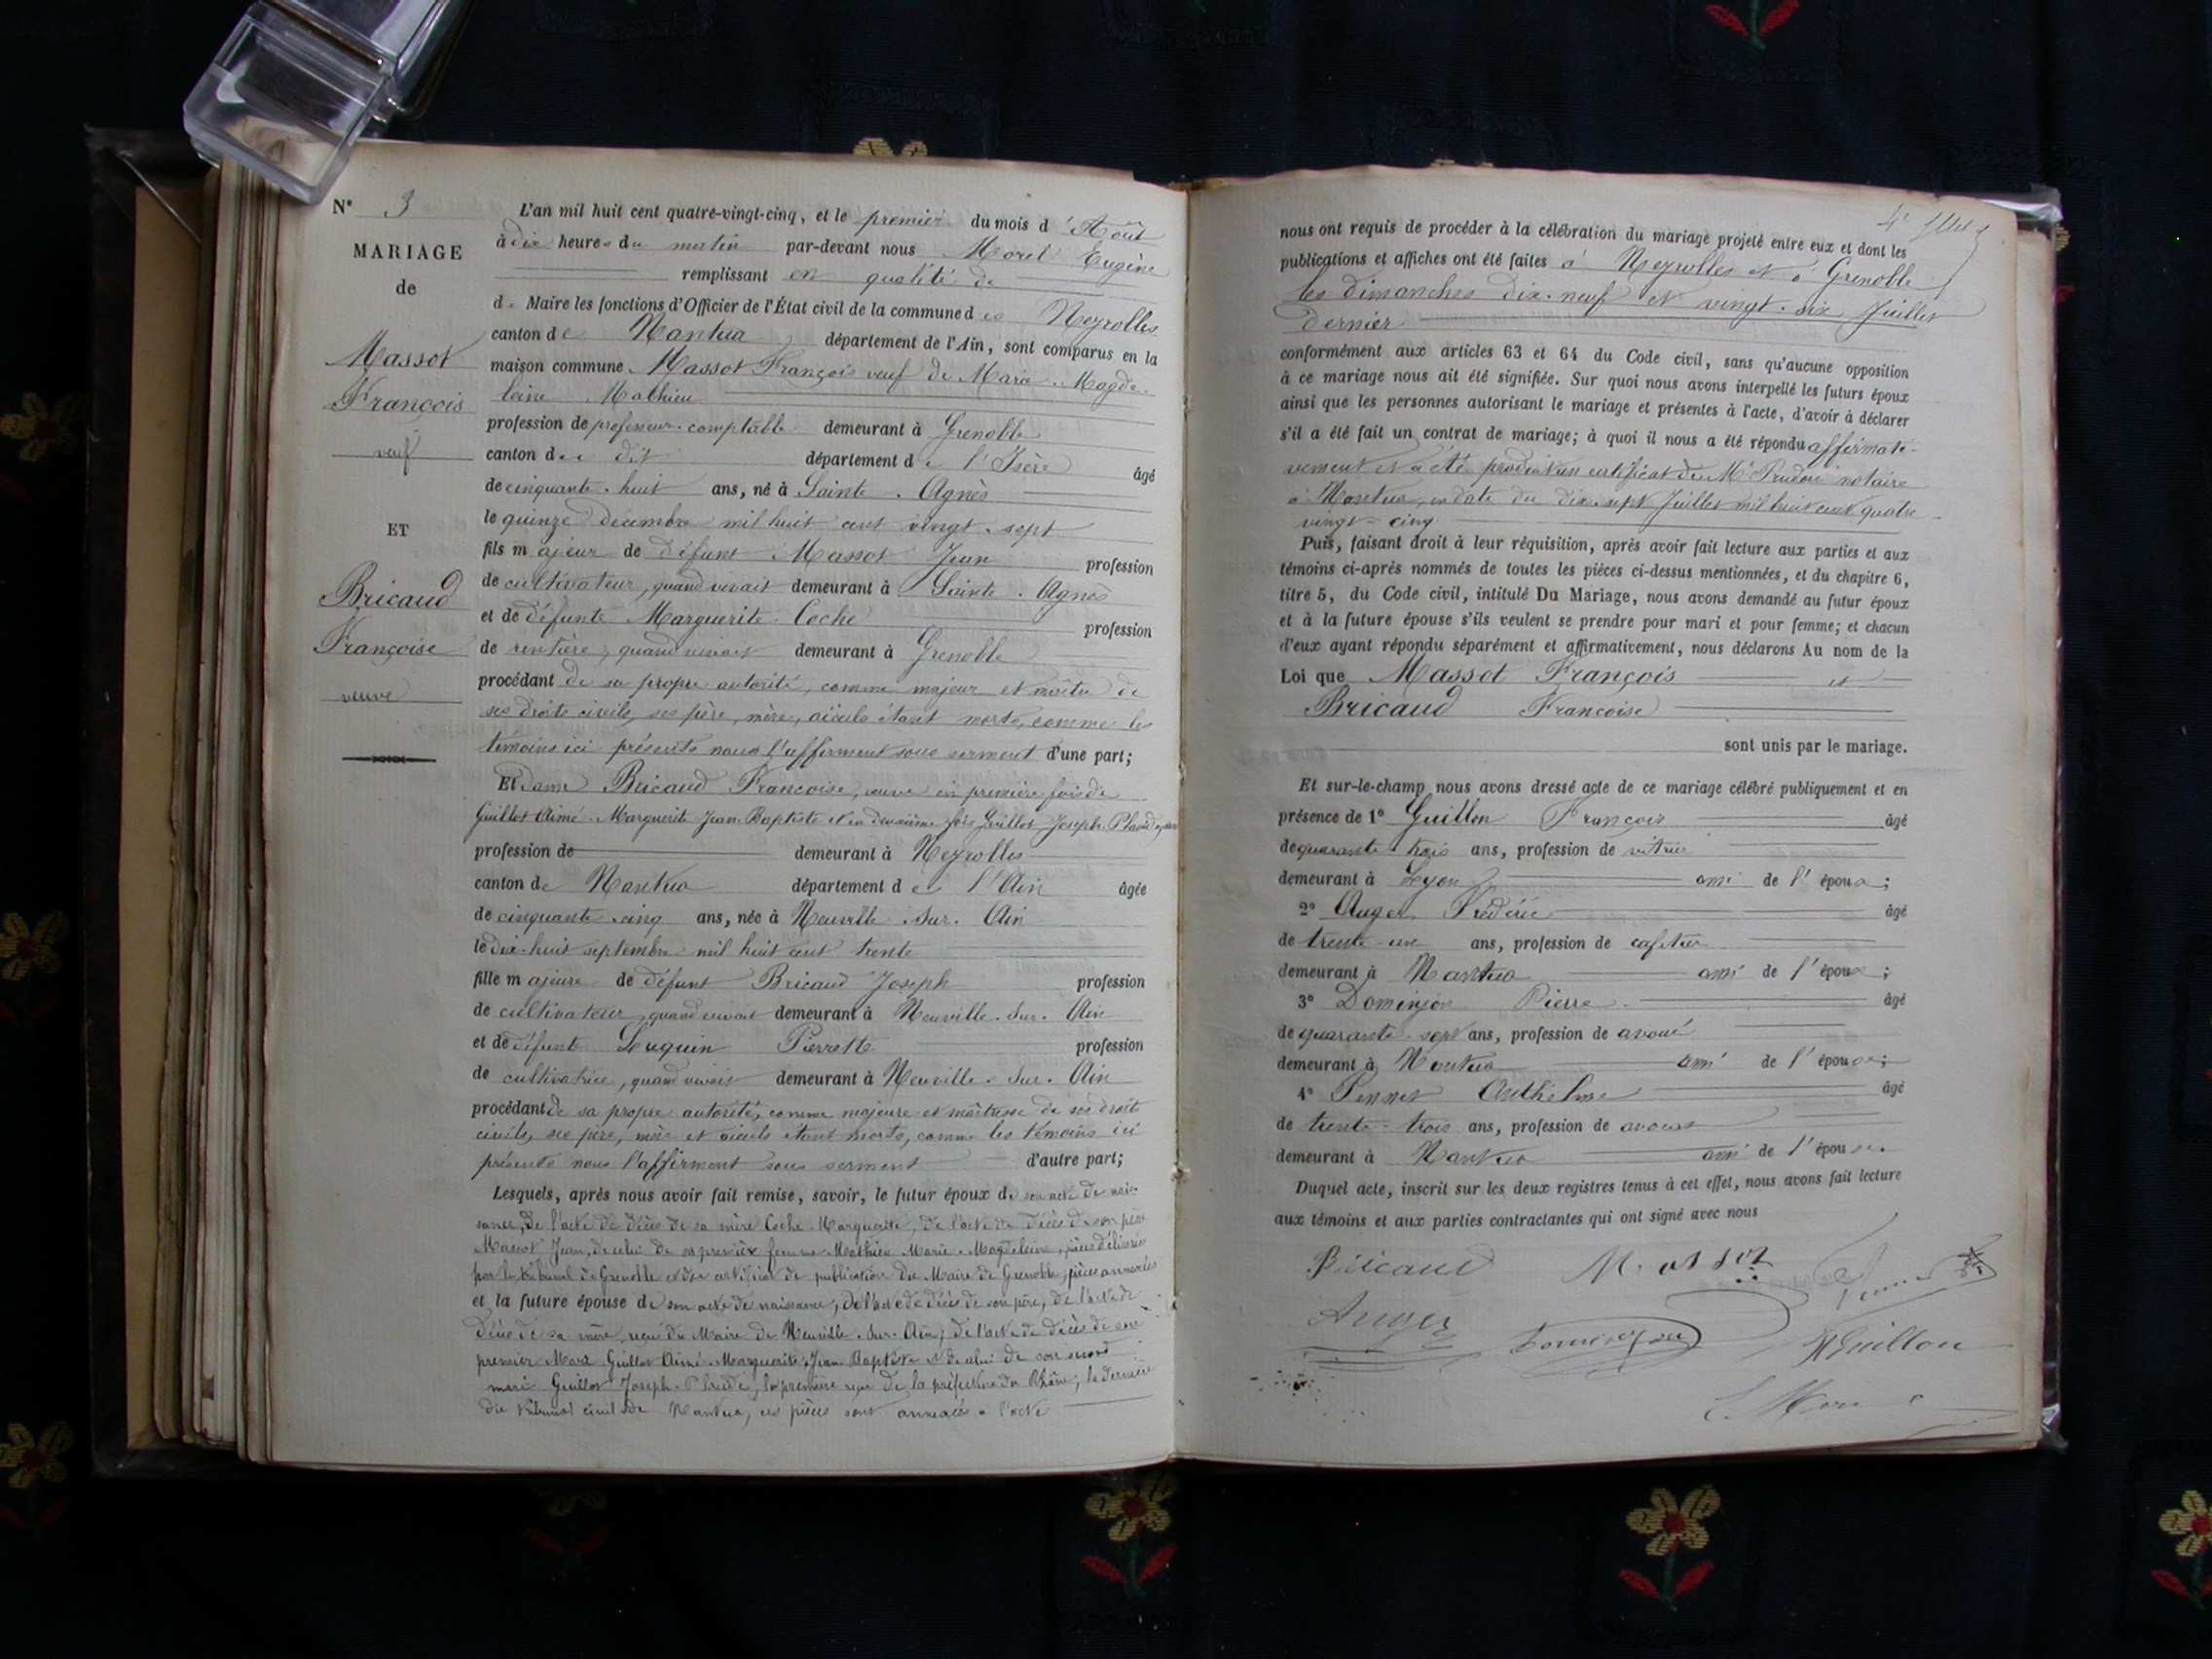 N° 3
MARIAGE
de
Massot
François
veuf
ET
Bricaud
Françoise
veuve
L'an mil huit cent quatre-vingt-cinq, et le premier du mois d'Août
à dix heures du matin par-devant nous Morel Eugène
remplissant en qualité de
de Maire les fonctions d'Officier de l'État civil de la commune des Neyrolles
canton de Nantua département de l'Ain, sont comparus en la
maison commune Massot François veuf de Marie Magde-
leine Mathieu
profession de professeur-comptable demeurant à Grenoble
canton du dit département de l'Isère âgé
de cinquante-huit ans, né à Sainte-Agnès
le quinze décembre mil huit cent vingt-sept
fils majeur de défunt Massot Jean profession
de cultivateur, quand vivait demeurant à Sainte-Agnès
et de défunte Marguerite Coche profession
de rentière, quand vivait demeurant à Grenoble
procédant de sa propre autorité, comme majeur et maître de
ses droits civils, ses père, mère, aïeuls étant morts, comme les
témoins ici présents nous l'affirment sous serment d'une part;
Et dame Bricaud Françoise, veuve en première fois de
Guillot Aimé-Marguerite-Jean-Baptiste et en deuxième fois Guillot Joseph
profession de demeurant à Neyrolles
canton de Nantua département de l'Ain âgée
de cinquante-cinq ans, née à Neuville-sur-Ain
le dix-huit septembre mil huit cent trente
fille majeure de défunt Bricaud Joseph profession
de cultivateur, quand vivait demeurant à Neuville-sur-Ain
et de défunte Pierrette profession
de cultivatrice, quand vivait demeurant à Neuville-sur-Ain
procédant de sa propre autorité, comme majeure et maîtresse de ses droits
civils, ses père, mère et aïeuls étant morts, comme les témoins ici
présents nous l'affirment sous serment d'autre part;
Lesquels, après nous avoir fait remise, savoir, le futur époux de son acte de nais-
sance, de l'acte de décès de sa mère Coche Marguerite, de l'acte de décès de son père
Massot Jean, de celui de sa première femme Mathieu Marie-Magdeleine, pièces délivrées
par le tribunal de Grenoble et d'un certificat de publication du Maire de Grenoble, pièces annexées
et la future épouse de son acte de naissance, de l'acte de décès de son père, de l'acte de
décès de sa mère, reçu du Maire de Neuville-sur-Ain, de l'acte de décès de son
premier Mari Guillot Aimé-Marguerite-Jean-Baptiste et de celui de son second
mari Guillot Joseph-Placide, la première reçu de la préfecture du Rhône, la dernière
du tribunal civil de Nantua, ces pièces sont annexées à l'acte
nous ont requis de procéder à la célébration du mariage projeté entre eux et dont les
publications et affiches ont été faites à Neyrolles et à Grenoble
les dimanches dix-neuf et vingt-six Juillet
dernier
conformément aux articles 63 et 64 du Code civil, sans qu'aucune opposition
à ce mariage nous ait été signifiée. Sur quoi nous avons interpellé les futurs époux
ainsi que les personnes autorisant le mariage et présentes à l'acte, d'avoir à déclarer
s'il a été fait un contrat de mariage; à quoi il nous a été répondu affirmati-
vement et a été produit un certificat de Me notaire
à Nantua, en date du dix-sept Juillet mil huit cent quatre-
vingt-cinq
Puis, faisant droit à leur réquisition, après avoir fait lecture aux parties et aux
témoins ci-après nommés de toutes les pièces ci-dessus mentionnées, et du chapitre 6,
titre 5, du Code civil, intitulé Du Mariage, nous avons demandé au futur époux
et à la future épouse s'ils veulent se prendre pour mari et pour femme; et chacun
d'eux ayant répondu séparément et affirmativement, nous déclarons Au nom de la
Loi que Massot François et
Bricaud Françoise
sont unis par le mariage.
Et sur-le-champ nous avons dressé acte de ce mariage célébré publiquement et en
présence de 1° Guillon François âgé
de quarante-trois ans, profession de
demeurant à Lyon ami de l'épouse;
2° Auger Frédéric âgé
de trente-un ans, profession de cafetier
demeurant à Nantua ami de l'épouse;
3° Dominjon Pierre âgé
de quarante-sept ans, profession de avoué
demeurant à Nantua ami de l'épouse;
4° Anthelme âgé
de trente-trois ans, profession de
demeurant à Nantua ami de l'épouse.
Duquel acte, inscrit sur les deux registres tenus à cet effet, nous avons fait lecture
aux témoins et aux parties contractantes qui ont signé avec nous
Bricaud Massot
Auger Dominjon Guillon
E. Morel